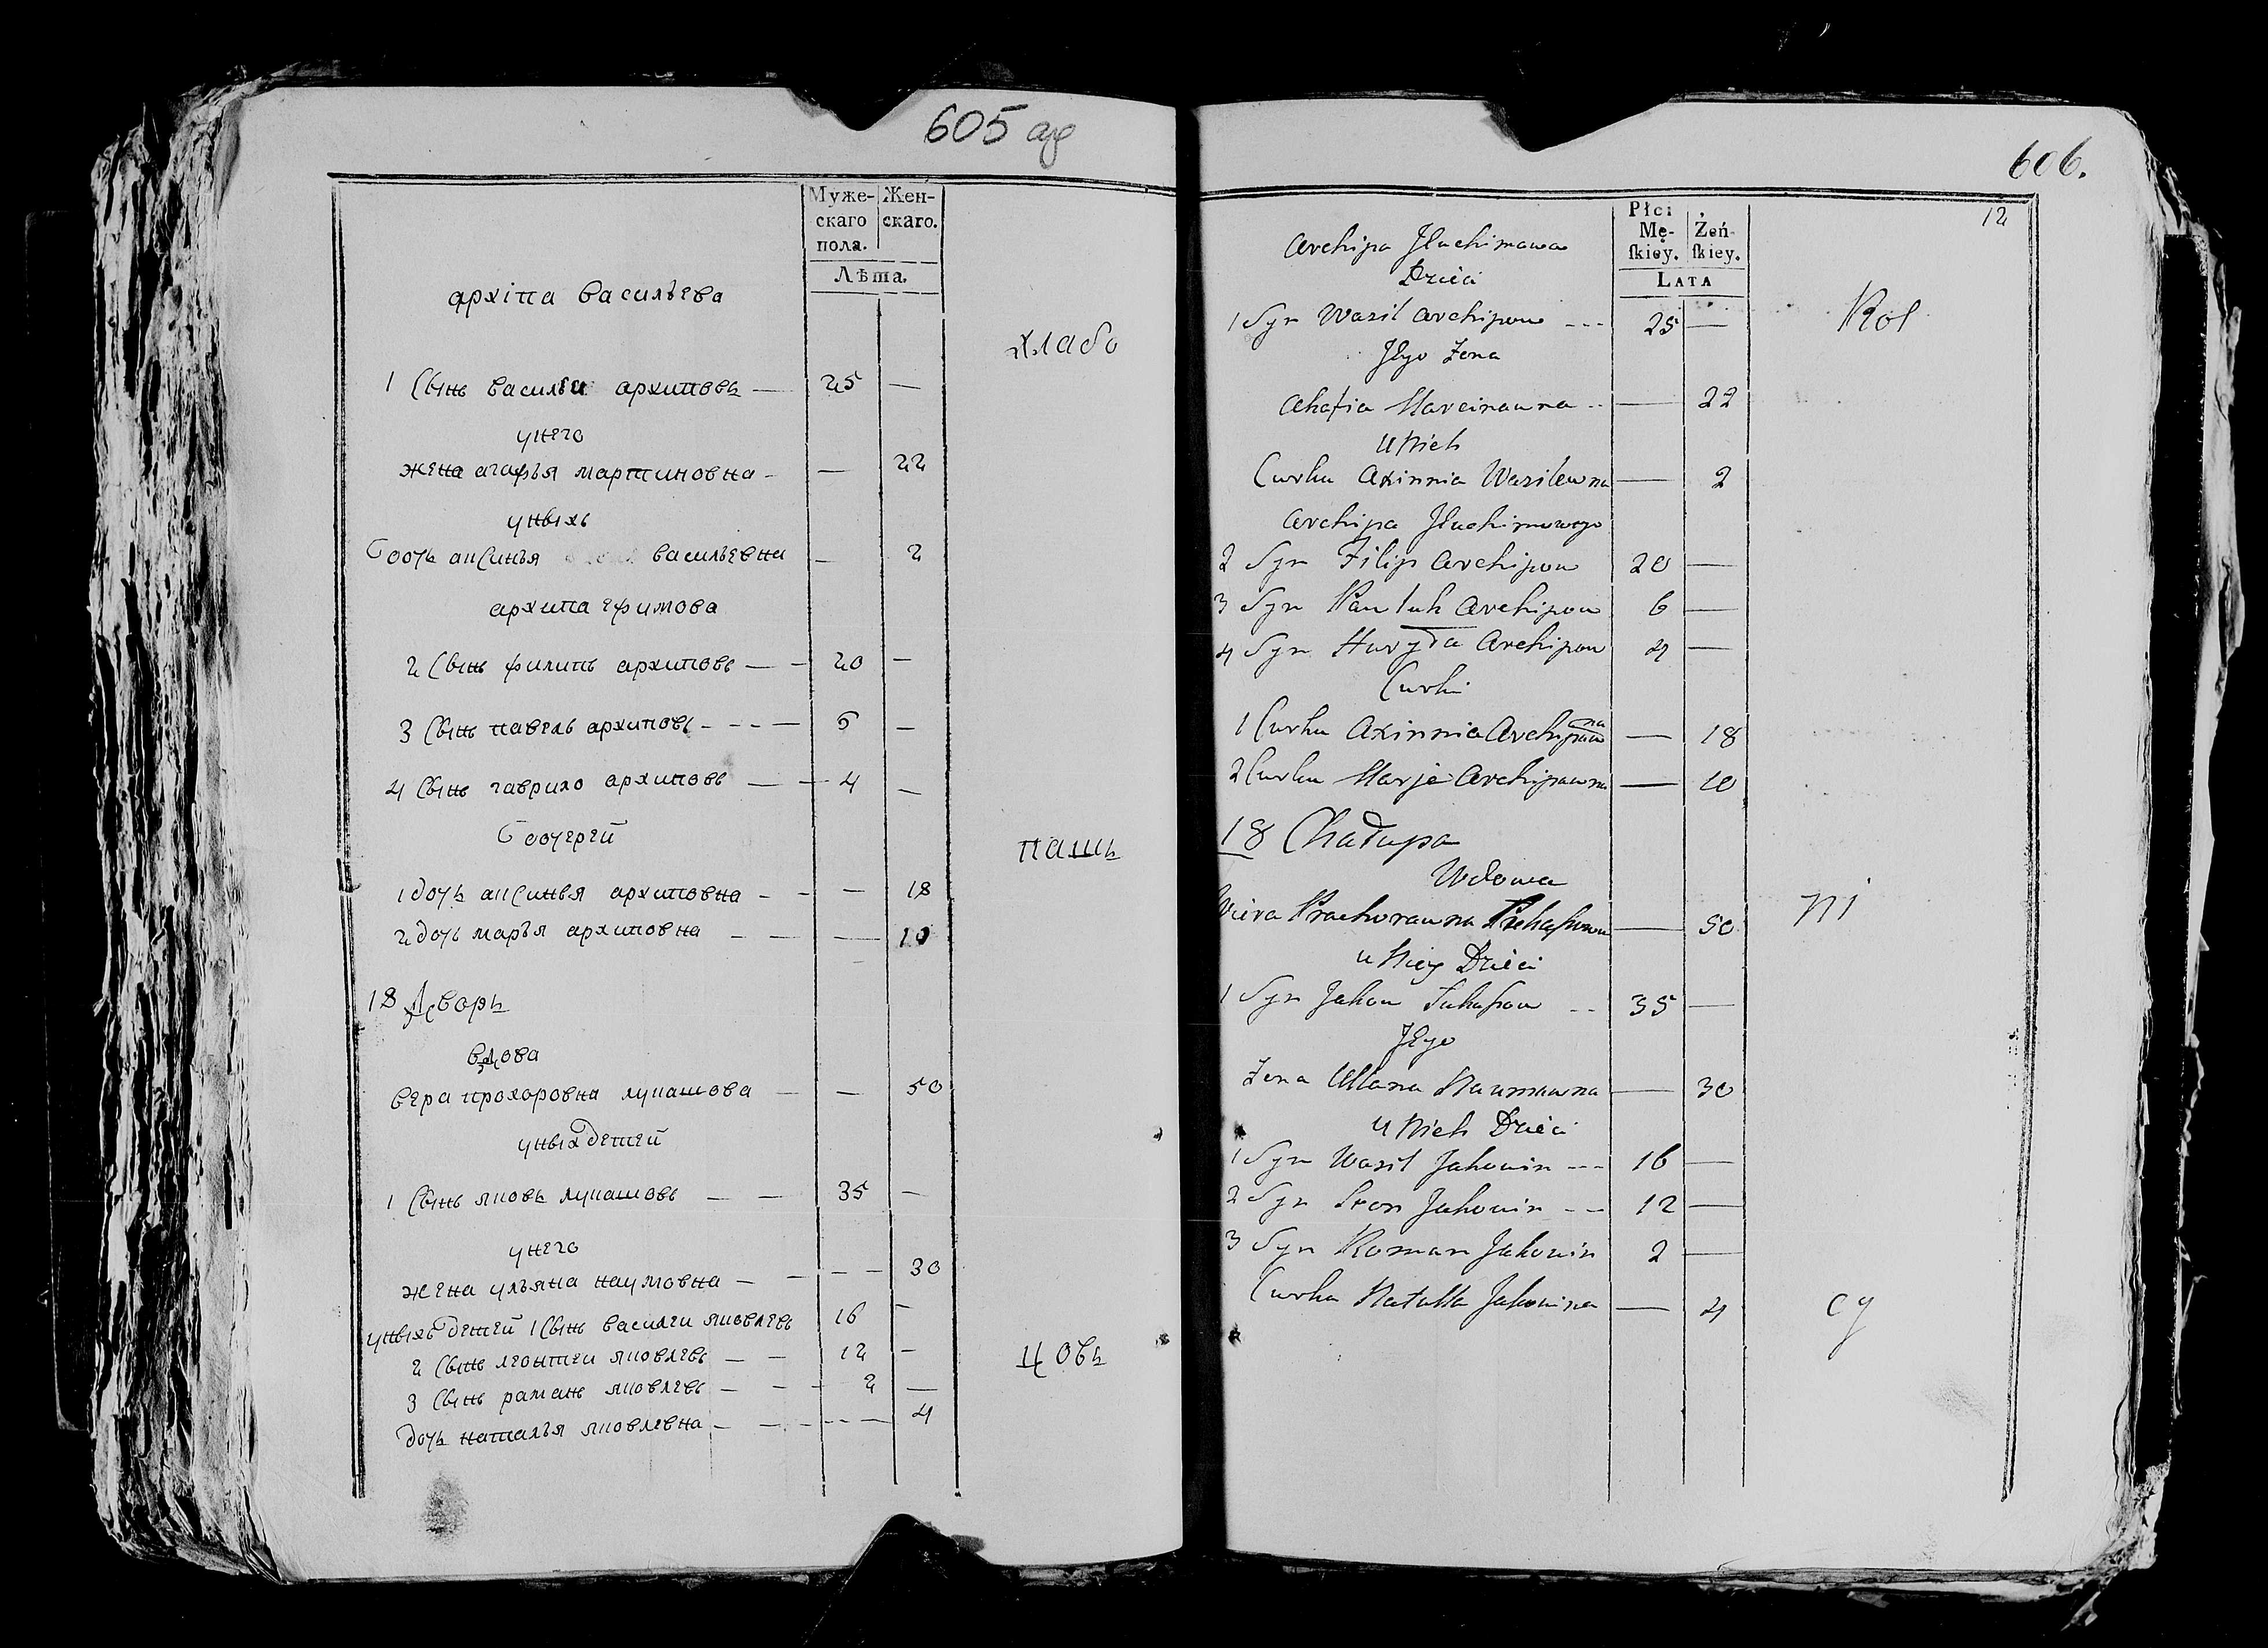 605 об
Муже-
скаго
пола.
Жен-
скаго.
Лѣта.
архіпа васильева
хлабо
1 Сынъ васильи архиповъ — 25 —
унего
жена агафья мартиновна — — 22
унвихъ
дочь аксинья васильевна — 2
архипа ефимова
2 Сынъ филипъ архиповъ — — 20 —
3 Сынъ павелъ архиповъ - - - — 6 —
4 Сынъ гаврило архиповъ — — 4 —
дочерей
пашь
1 дочь аксинья архиповна - — — 18
2 дочь марья архиповна — — — 10
18 Дворъ
вдова
вера прохоровна лукашова — — 50
уных детей
1 Сынъ яковъ лукашовъ — — 35 —
унего
жена ульяна наумовна — — - - — 30
уныхъ детей 1 Сынъ василеи яковлевъ 16 —
2 Сынъ леонтеи яковлевъ — — 12 —
цовъ
3 Сынъ раманъ яковлевъ — — - 2 —
дочь наталья яковлевна — — - - - — 4
606.
12
Płci
Mę-
skiey.
Żeń-
skiey.
LATA
Archipa Jłuchimawa
Dzieci
1 Syn Wasil Archipow - - - 25 —
Rol
Jego Zona
Ahafia Marcinawna - - — 22
u Nich
Curka Axinnia Wasilewna — 2
Archipa Jłuchimowego
2 Syn Filip Archipow 20 —
3 Syn Pauluk Archipow 6 —
4 Syn Huryła Archipow 4 —
Curki
1 Curka Axinnia Archipawna — 18
2 Curka Marja Archipawna — 10
18 Chałupa
Wdowa
Wiera Prachorawna — 50
ni
u Niey Dzieci
1 Syn Jakow Łukaszow - - 35 —
Jego
Zona Ullana Naumawna — 30
u Nich Dzieci
1 Syn Wasil Jakowin - - - 16 —
2 Syn Leon Jakowin - - 12 —
3 Syn Roman Jakowin 2 —
Curka Natalla Jakowina — 4
cy